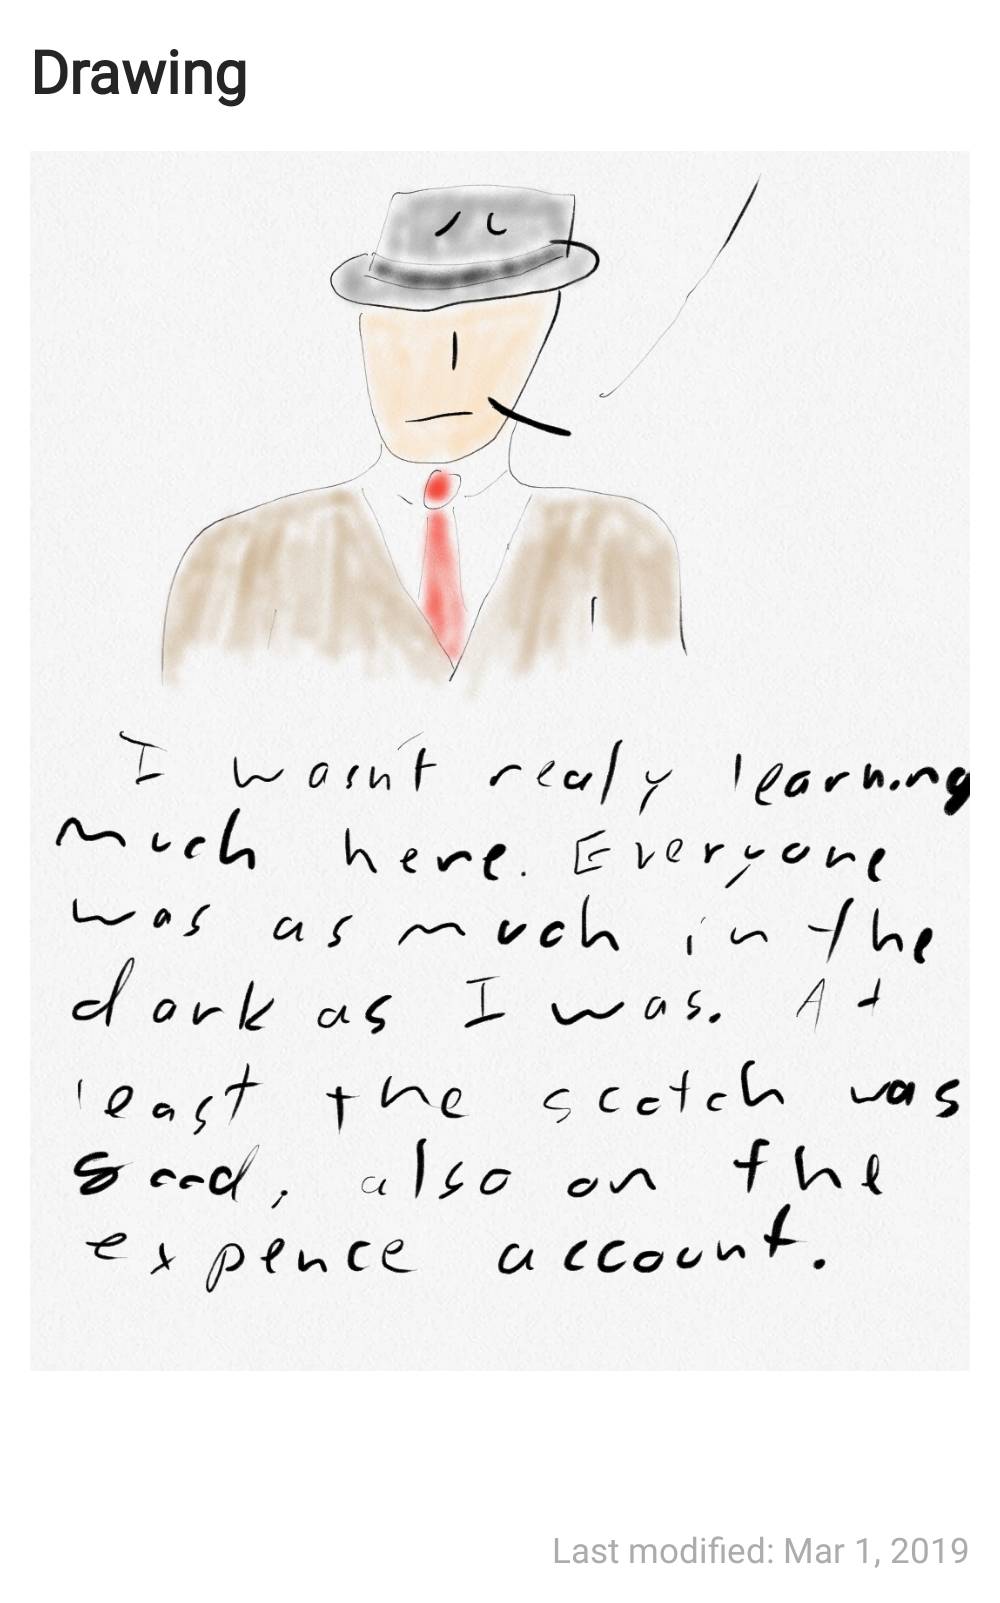 Drawing
I wasn't realy learning
much here. Everyone
was as much in the
dark as I was. At
least the scotch was
good, also on the
expence account.
Last modified: Mar 1, 2019